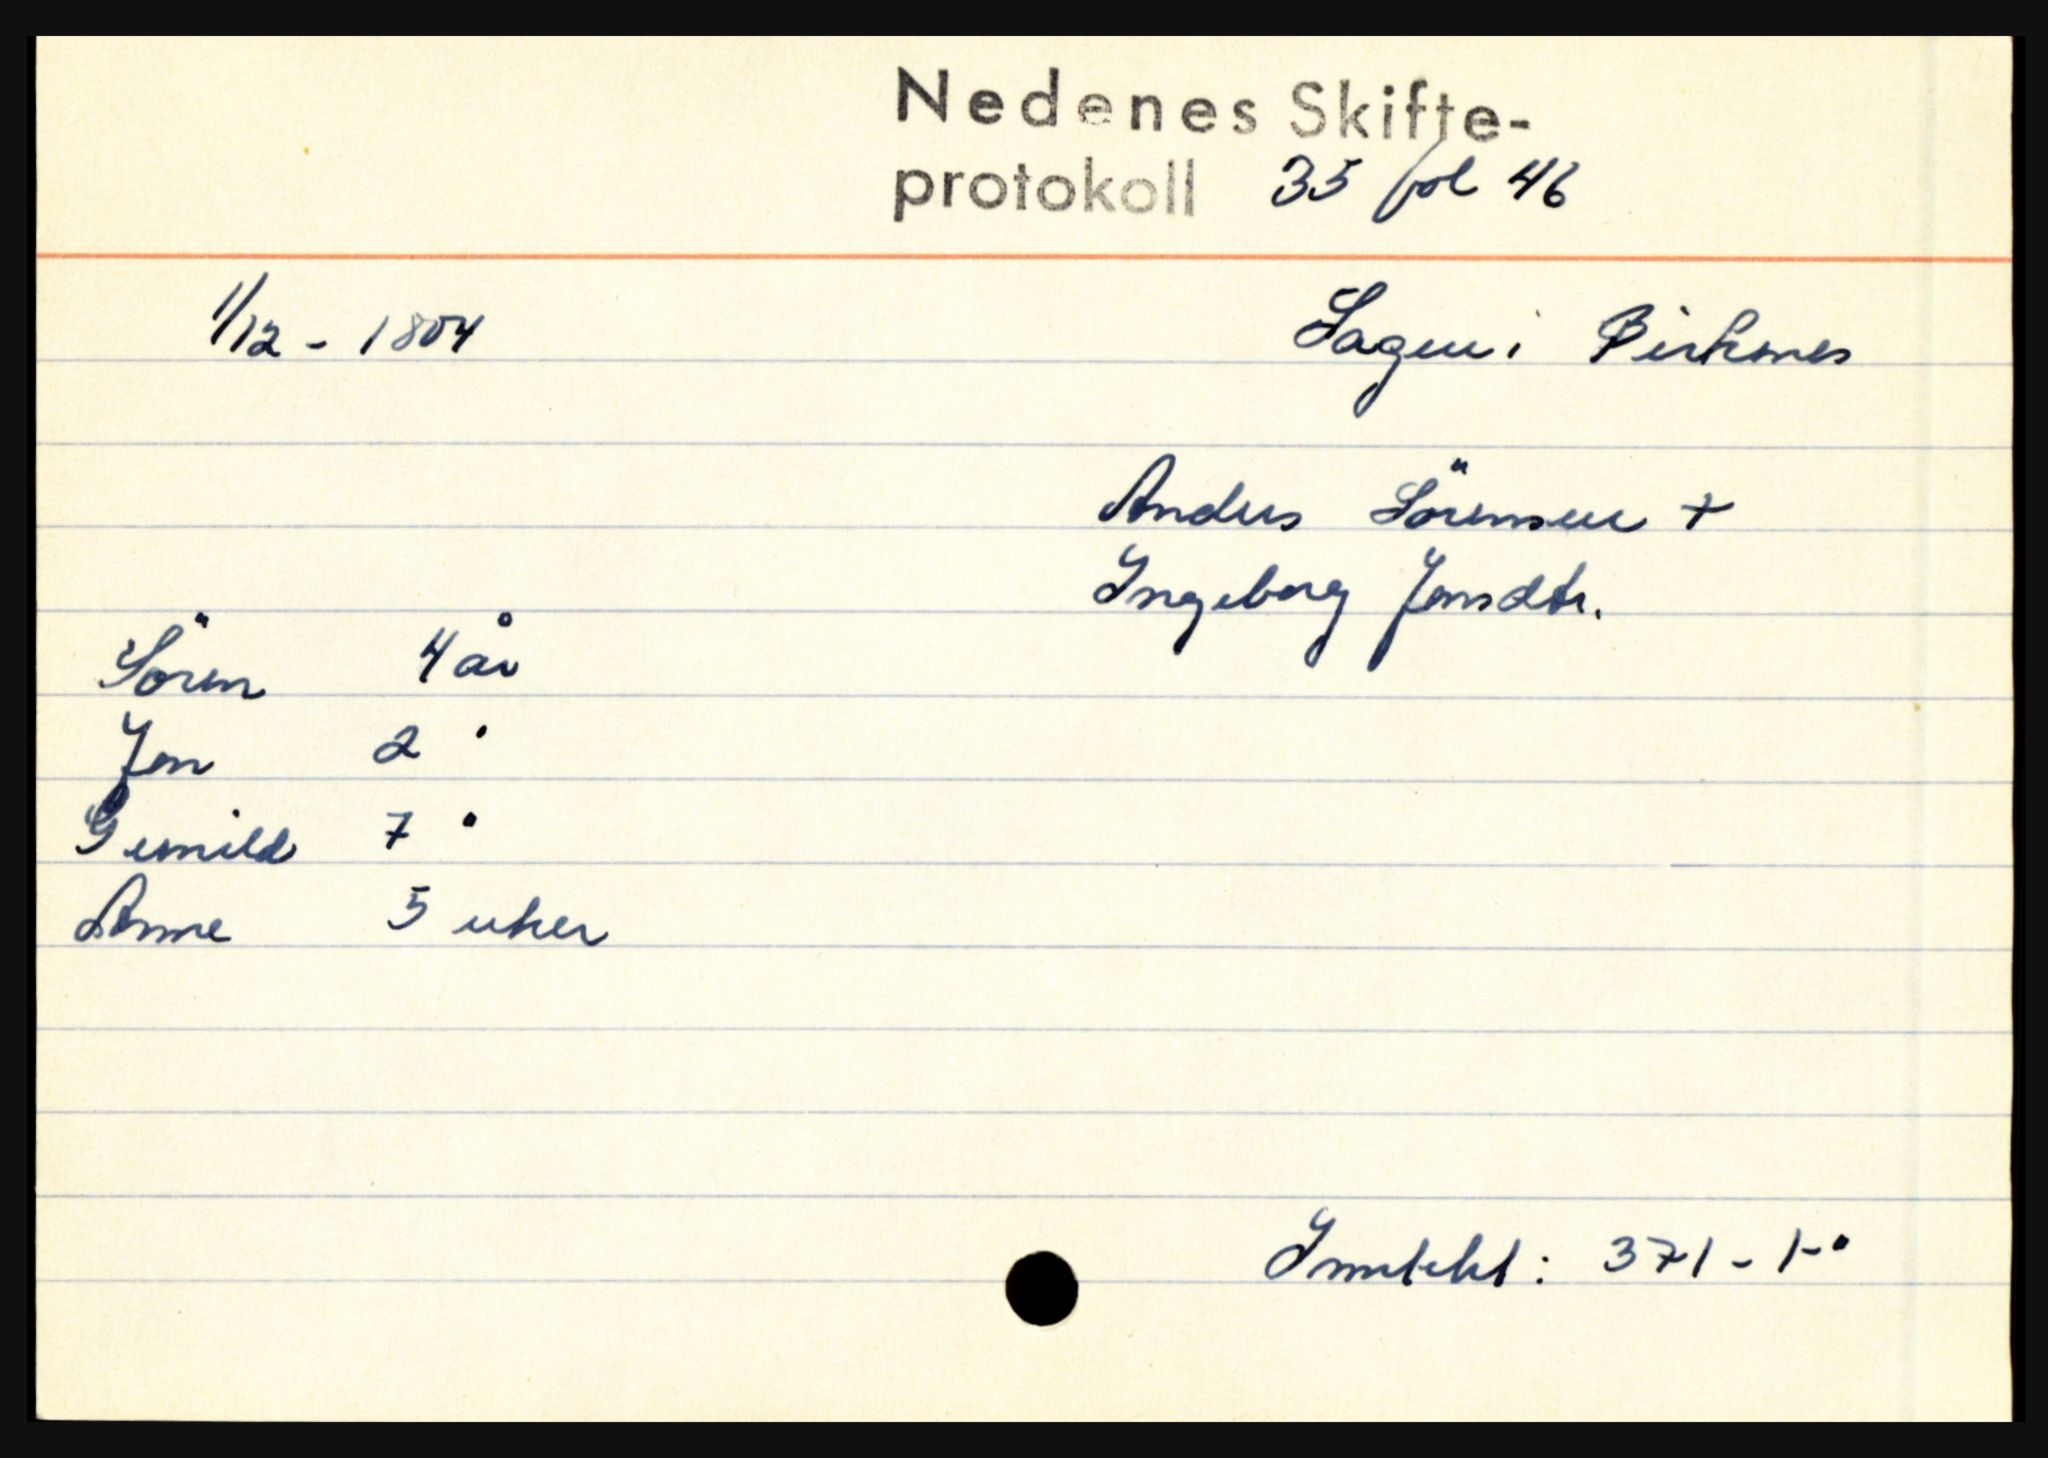 Nedenes Skifte-
protokoll 35 fol 46
1/12 - 1804 Lagen i Birkenes
Anders Sörensen +
Ingeborg Jonsdtr.
Sören 4 år
Jon 2 "
Gunild 7 "
Anne 5 uker
Inntekt: 371-1-"